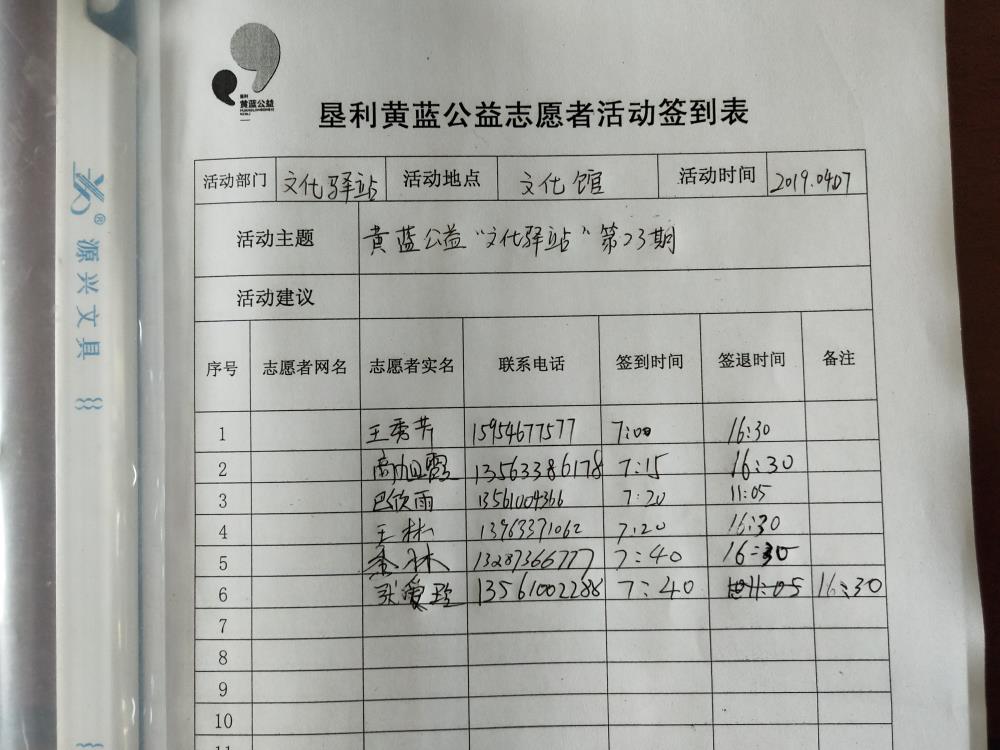 垦利
黄蓝公益
垦利黄蓝公益志愿者活动签到表
活动部门 文化驿站 活动地点 文化馆 活动时间 2019.0407
活动主题 黄蓝公益“文化驿站”第23期
活动建议
序号 志愿者网名 志愿者实名 联系电话 签到时间 签退时间 备注
1 王秀芹 15954677577 7:00 16:30
2 13563386178 7:15 16:30
3 巴欣雨 13561004366 7:20 11:05
4 王林 13963371062 7:20 16:30
5 13287366777 7:40 16:30
6 张爱玲 13561002288 7:40 16:30
7
8
9
10
11
源兴文具